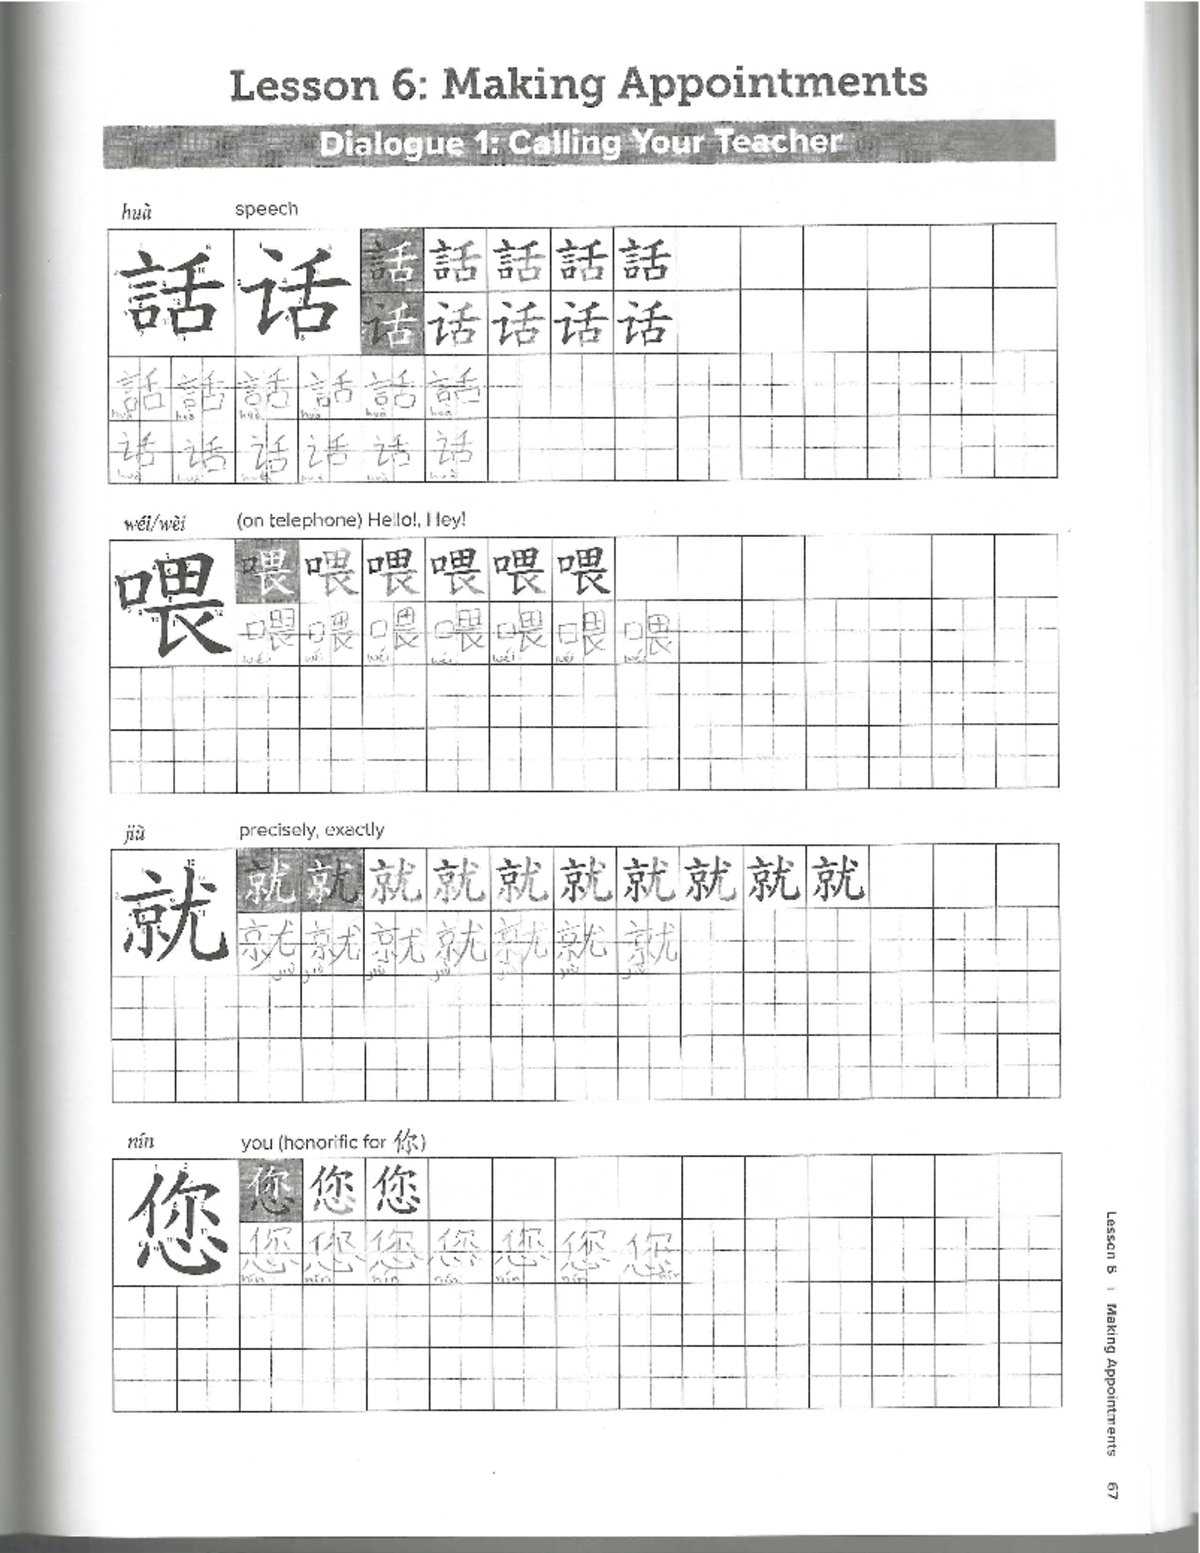 Lesson 6: Making Appointments
Dialogue 1: Calling Your Teacher
huà speech
話 话 話 話 話 話 話
话 话 话 话 话
話 話 話 話 話 話
huà huà huà huà huà huà
话 话 话 话 话 话
huà huà huà huà huà huà
wéi/wèi (on telephone) Hello!, Hey!
喂 喂 喂 喂 喂 喂 喂
喂 喂 喂 喂 喂 喂 喂
wéi wéi wéi wéi wéi wéi wéi
jiù precisely, exactly
就 就 就 就 就 就 就 就 就 就 就
就 就 就 就 就 就 就
jiù jiù jiù jiù jiù jiù jiù
nín you (honorific for 你)
您 您 您 您
您 您 您 您 您 您 您
nín nín nín nín nín nín nín
Lesson 6 | Making Appointments 67